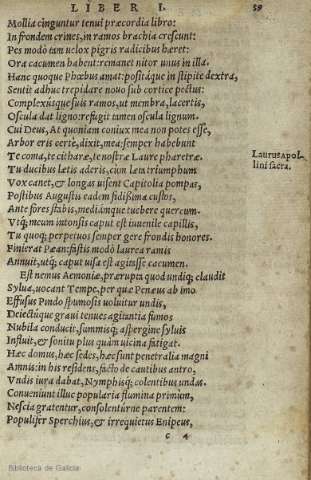 LIBER I. 59
Mollia cinguntur tenui præcordia libro:
In frondem crines, in ramos brachia crescunt:
Pes modò tam uelox pigris radicibus hæret:
Ora cacumen habent: remanet nitor unus in illa.
Hanc quoque Phœbus amat: positáque in stipite dextra,
Sentit adhuc trepidare nouo sub cortice pectus:
Complexusque suis ramos, ut membra, lacertis,
Oscula dat ligno: refugit tamen oscula lignum.
Cui Deus, At quoniam coniux mea non potes esse,
Arbor eris certè, dixit, mea: semper habebunt
Te coma, te citharæ, te nostræ Laure pharetræ.
Laurus apol
lini sacra.
Tu ducibus lætis aderis, cum læta triumphum
Vox canet, & longas uisent Capitolia pompas,
Postibus Augustis eadem fidißima custos,
Ante fores stabis, mediámque tuebere quercum.
Vtq; meum intonsis caput est iuuenile capillis,
Tu quoq; perpetuos semper gere frondis honores.
Finierat Pæan: factis modò laurea ramis
Annuit, utq; caput uisa est agitasse cacumen.
Est nemus Aemoniæ, prærupta quod undiq; claudit
Sylua, uocant Tempe, per quæ Penæus ab imo
Effusus Pindo spumosis uoluitur undis,
Deiectuque graui tenues agitantia fumos
Nubila conducit, summisq; aspergine syluis
Influit, & sonitu plus quàm uicina fatigat.
Hæc domus, hæc sedes, hæc sunt penetralia magni
Amnis: in his residens, facto de cautibus antro,
Vndis iura dabat, Nymphisq; colentibus undas.
Conueniunt illuc popularia flumina primum,
Nescia gratentur, consolenturne parentem:
Populifer Sperchius, & irrequietus Enipeus,
c 4
Biblioteca de Galicia